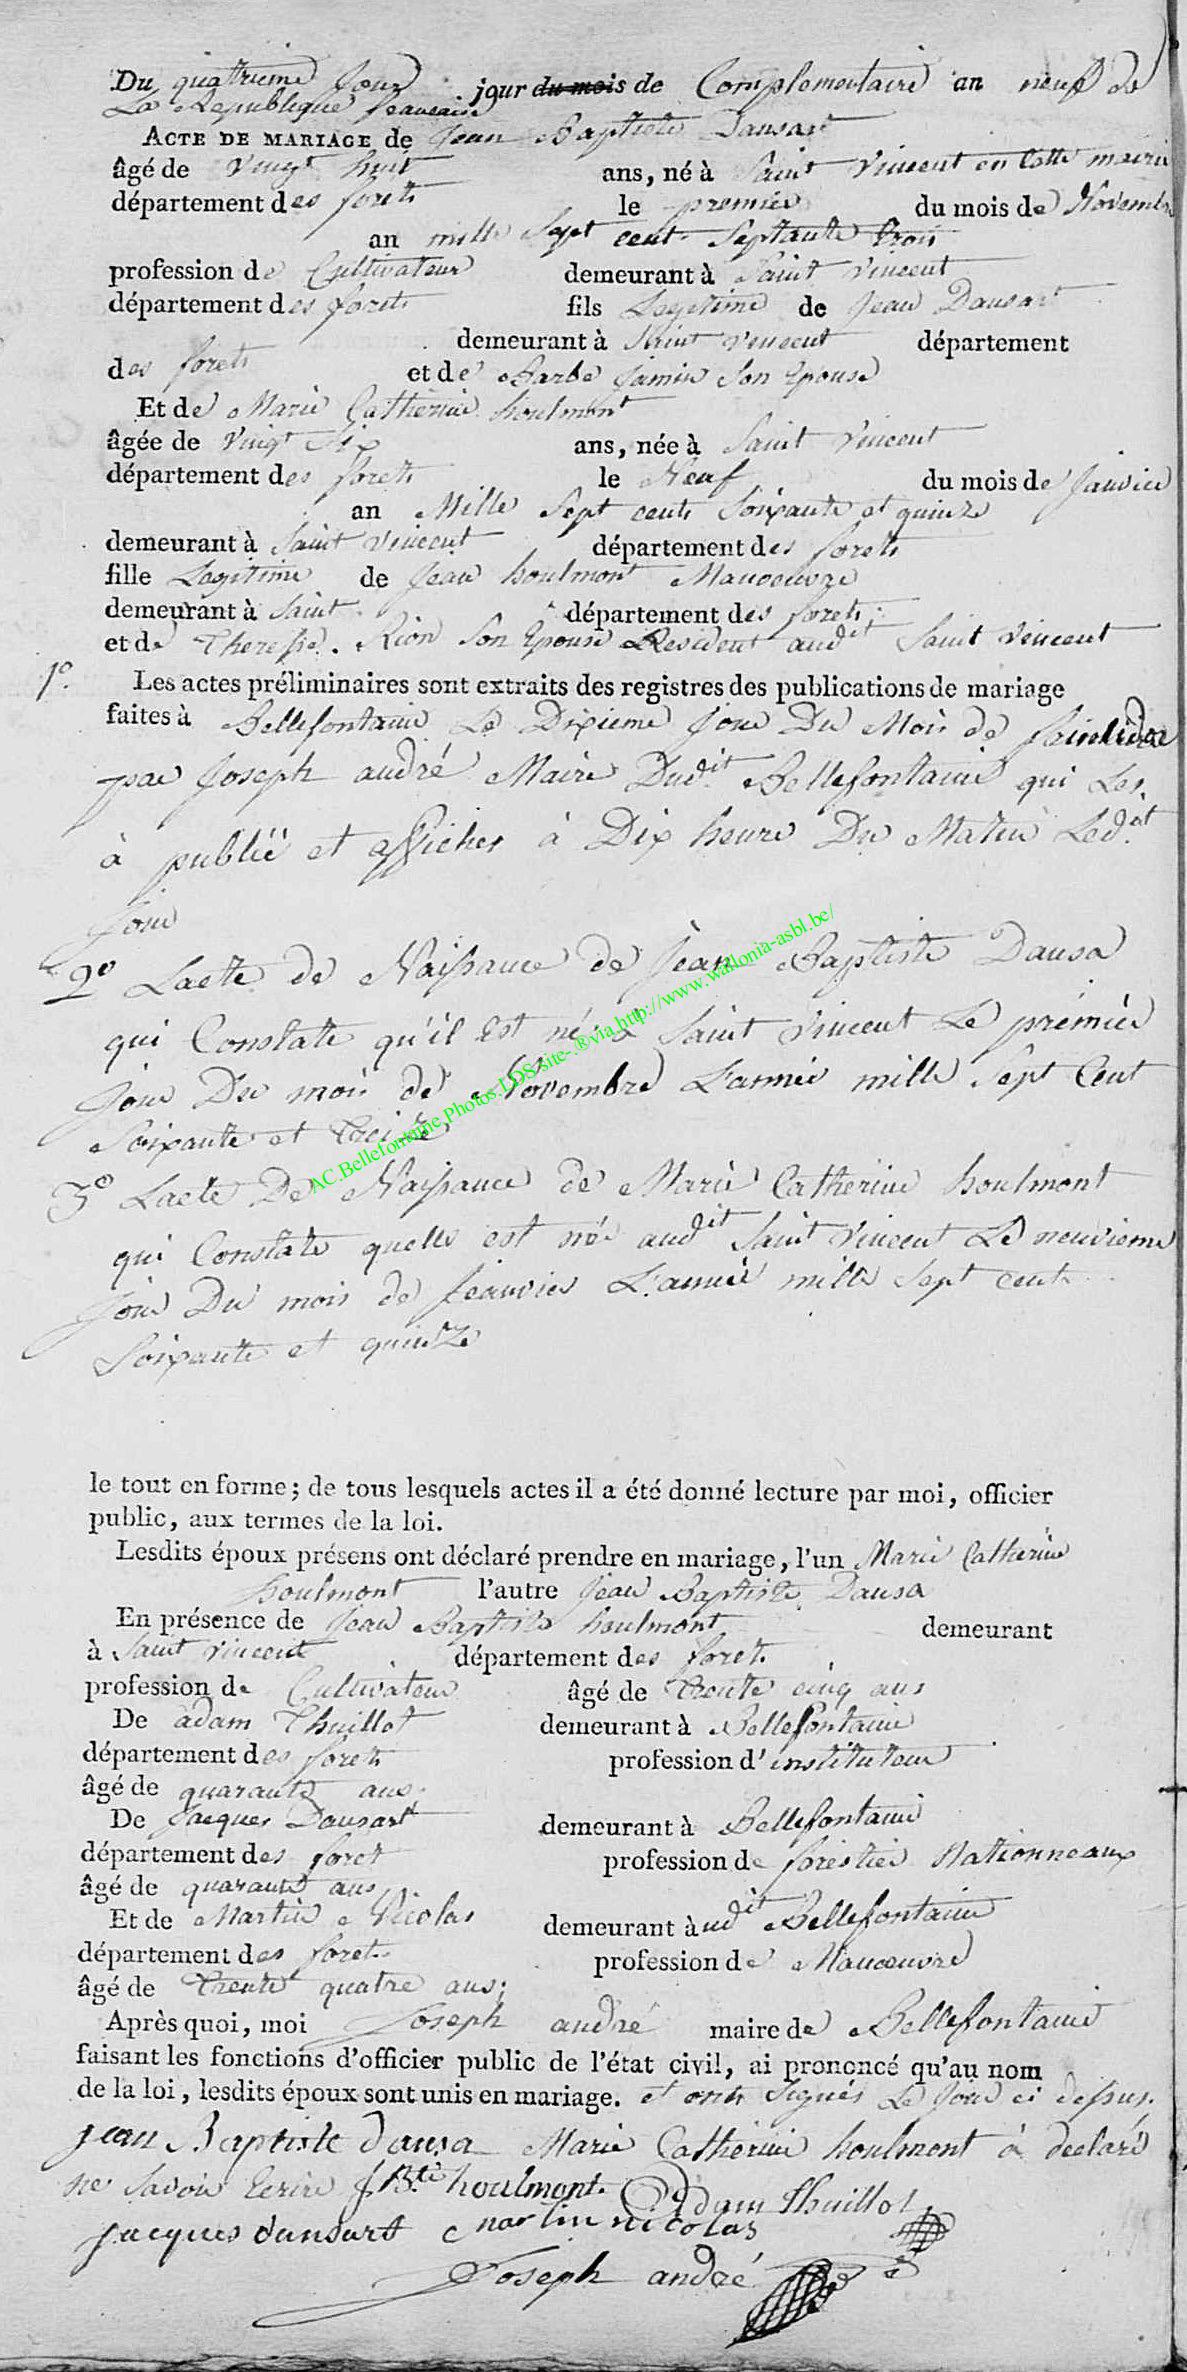 Du quatrieme Jour jour du mois de Complementaire an neuf de
La Republique francaise
ACTE DE MARIAGE de Jean Baptiste Dansart
âgé de Vingt huit ans, né à Saint Vincent en Cette mairie
département des forets le premier du mois de Novembre
an mille Sept cent Septante trois
profession de Cultivateur demeurant à Saint Vincent
département des forets fils Legitime de Jean Dansart
demeurant à Saint Vincent département
des forets et de Barbe Jamin Son Epouse
Et de Marie Catherine houlmont
âgée de Vingt Six ans, née à Saint Vincent
département des forets le Neuf du mois de Janvier
an Mille Sept cents Soixante et quinze
demeurant à Saint Vincent département des forets
fille Legitime de Jean houlmont Manoeuvre
demeurant à Saint département des forets;
et de Theresse Rion Son Epouse Resident audit Saint Vincent
1º. Les actes préliminaires sont extraits des registres des publications de mariage
faites à Bellefontaine Le Dixieme Jour Du Mois de
par Joseph andré Maire Dudit Bellefontaine qui Les
à publié et afficher à Dix heure Du Matin Ledit
Jour
2º Lacte de Naissance de Jean Baptiste Dansa
qui Constate qu'il Est né à Saint Vincent Le premier
Jour Du mois de Novembre L'année mille Sept Cent
Soixante et treize
3º Lacte De Naissance de Marie Catherine houlmont
qui Constate quelle est née audit Saint Vincent Le neuvieme
Jour Du mois de Jeanvier L'année mille Sept cents
Soixante et quinze
AC.Bellefontaine.Photos.LDS.site-.®via.http://www.wallonia-asbl.be/
le tout en forme; de tous lesquels actes il a été donné lecture par moi, officier
public, aux termes de la loi.
Lesdits époux présens ont déclaré prendre en mariage, l'un Marie Catherine
houlmont l'autre Jean Baptiste Dansa
En présence de Jean Baptiste houlmont demeurant
à Saint Vincent département des forets
profession de Cultivateur âgé de trente cinq ans
De adam Thuillot demeurant à Bellefontaine
département des forets profession d'instituteur
âgé de quarante ans;
De Jacques Dansart demeurant à Bellefontaine
département des foret profession de forestier Nationneaux
âgé de quarante ans
Et de Martin Nicolas demeurant àudit Bellefontaine
département des forets profession de Manoeuvre
âgé de trente quatre ans;
Après quoi, moi Joseph andré maire de Bellefontaine
faisant les fonctions d'officier public de l'état civil, ai prononcé qu'au nom
de la loi, lesdits époux sont unis en mariage. et onts Signés Le Jour ci dessus.
jean Baptiste dansa Marie Catherine houlmont à declaré
ne Savoir Ecrire J Bte houlmont. Adam Thuillot
jacques dansart martin nicolas
Joseph andré